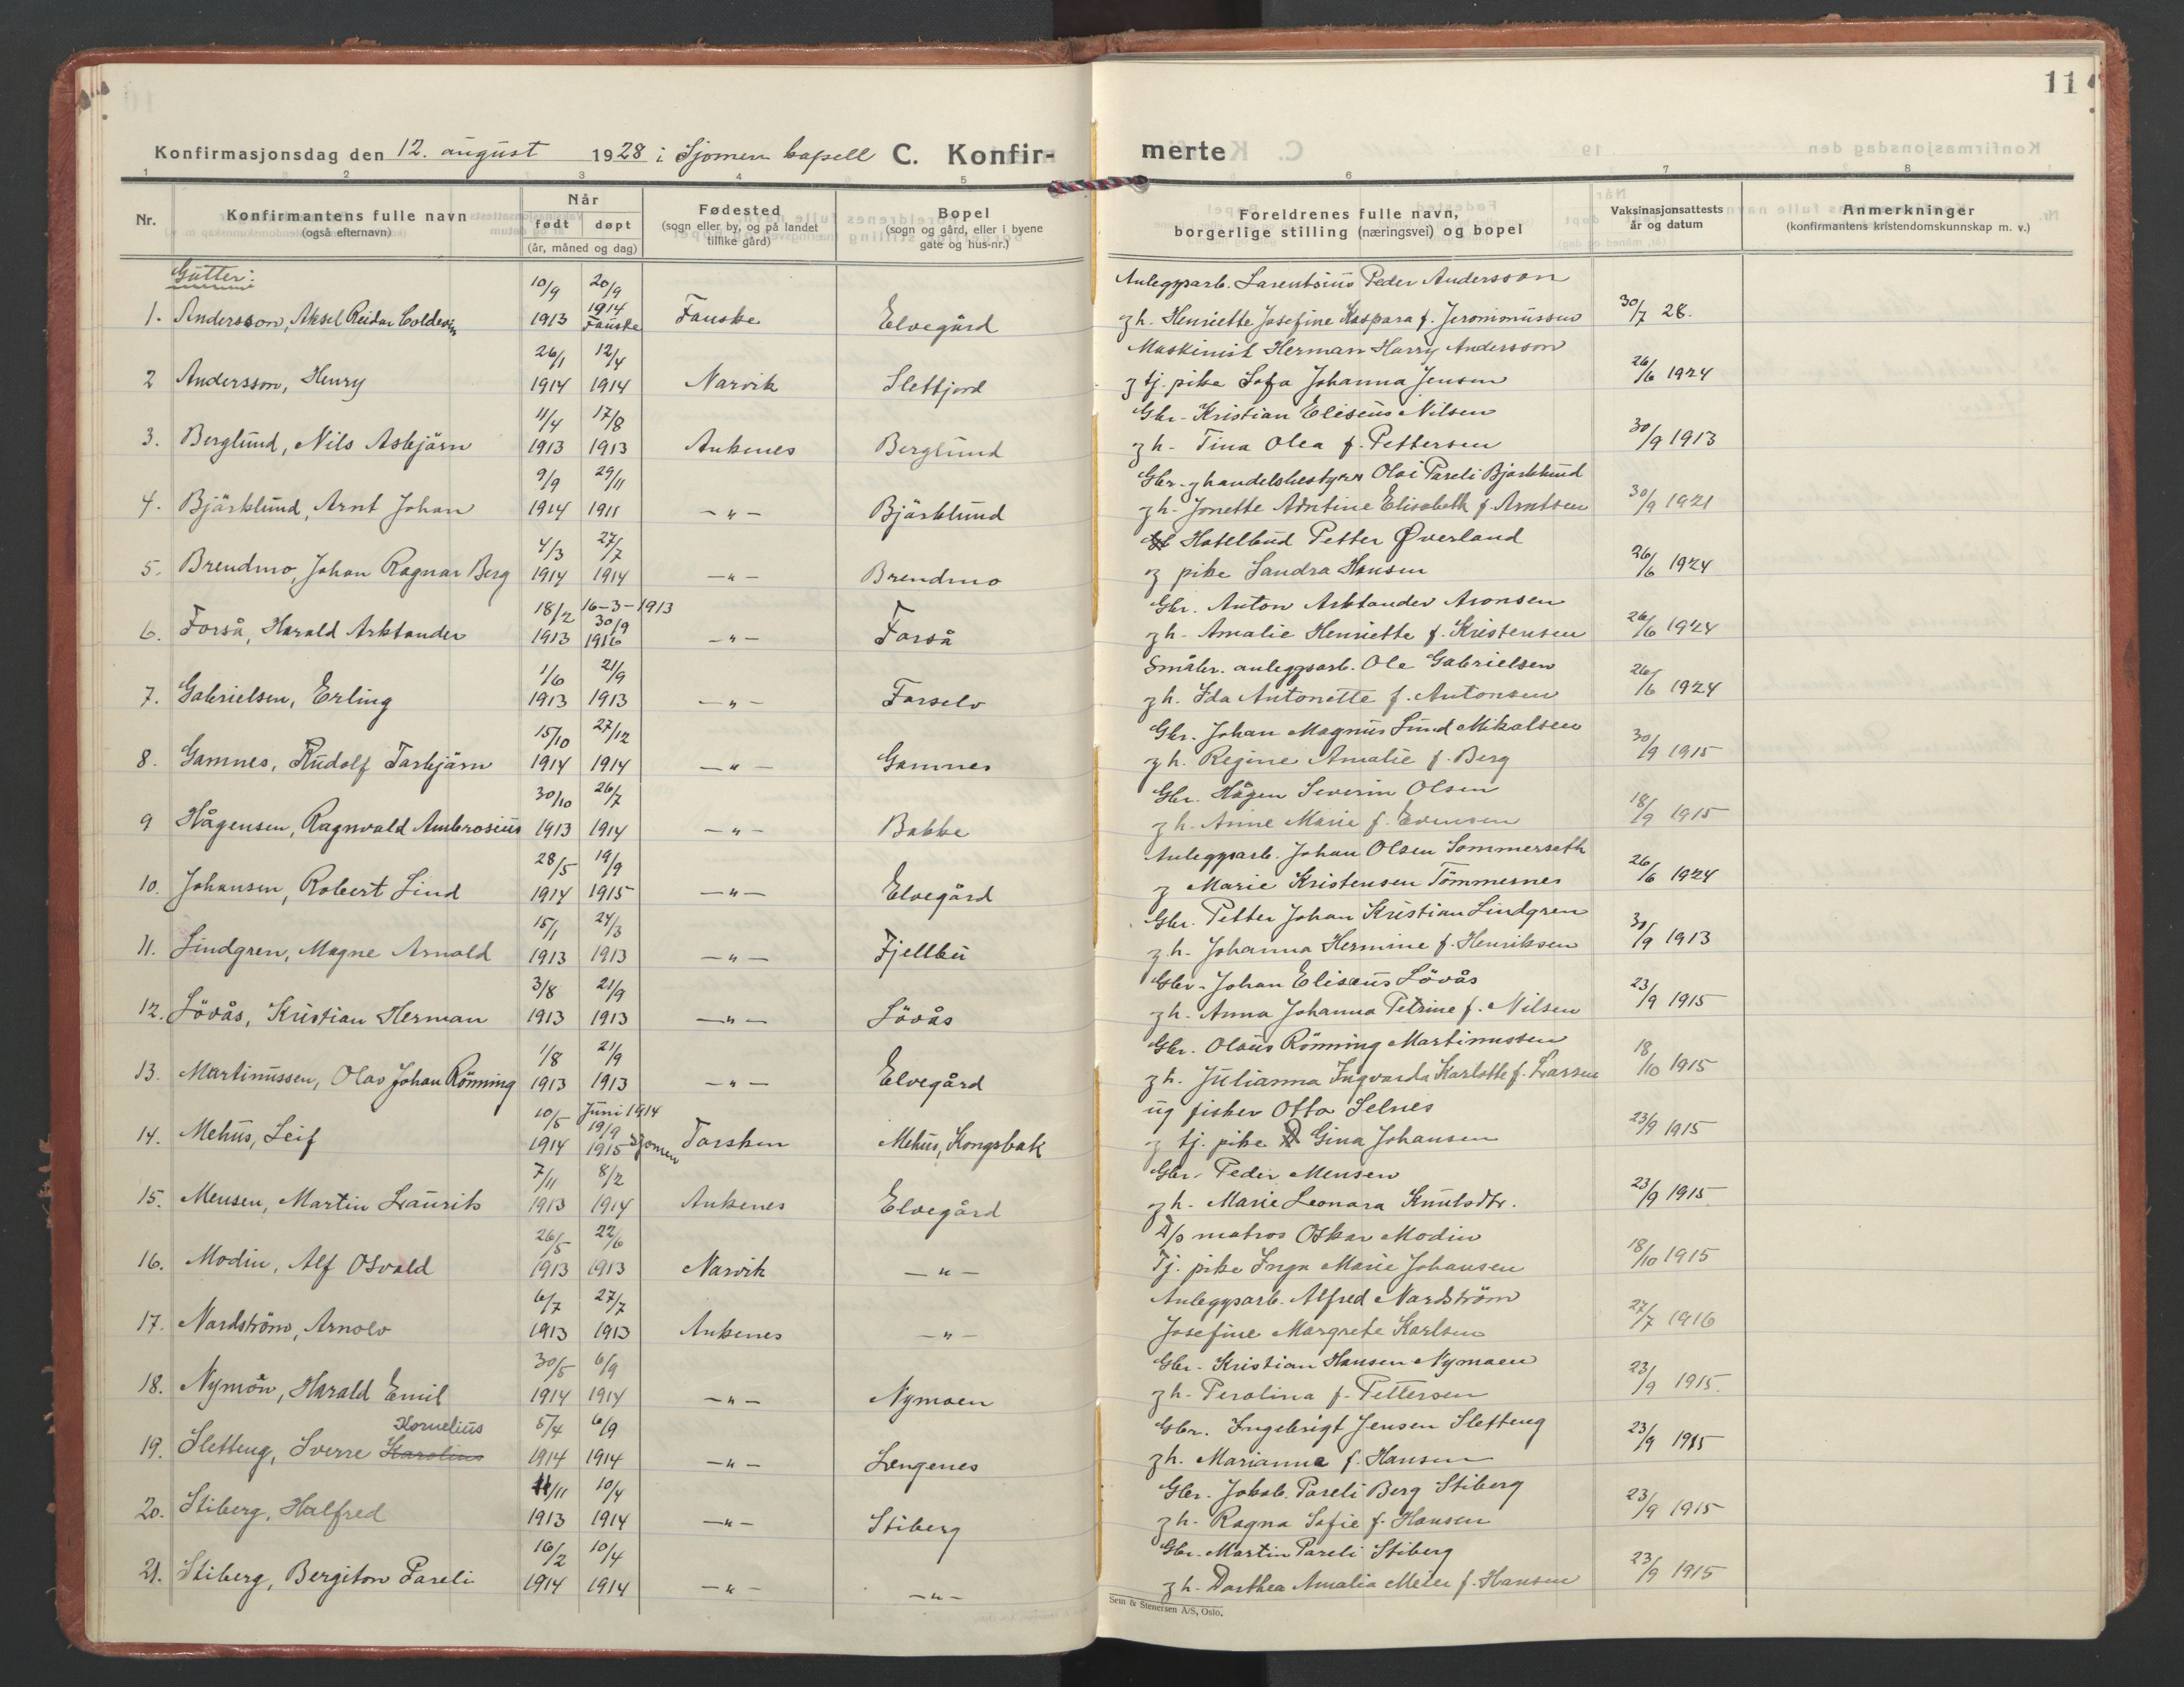 11
Konfirmasjonsdag den 12. august 1928 i Sjomen kapell C. Konfir-
merte
1 2 3 4 5 6 7 8
Nr.
Konfirmantens fulle navn
(også efternavn)
Når
født døpt
(år, måned og dag)
Fødested
(sogn eller by, og på landet
tillike gård)
Bopel
(sogn og gård, eller i byene
gate og hus-nr.)
Foreldrenes fulle navn,
borgerlige stilling (næringsvei) og bopel
Vaksinasjonsattests
år og datum
Anmerkninger
(konfirmantens kristendomskunnskap m. v.)
Gutter:
10/9 20/9 Anleggsarb. Larentsius Peder Andersson
1. Andersson, Aksel Reidar Coldevin 1913 1914 Fauske Fauske Elvegård g h. Henriette Josefine Kaspara f. Jeronimussen 30/7 28.
26/1 12/4 Maskinist Herman Harry Andersson
2 Andersson, Henry 1914 1914 Narvik Slettjord g tj. pike Sofa Johanna Jensen 26/6 1924
11/4 17/8 Gbr. Kristian Eliseus Nilsen
3. Berglund, Nils Asbjörn 1913 1913 Ankenes Berglund g h. Tina Olea f. Pettersen 30/9 1913
9/9 29/11 Gbr. g handelsbestyrer Olai Pareli Bjørklund
4. Bjørklund, Arnt Johan 1914 1911 -"- Bjørklund g h. Jonette Adritine Elisabeth f. Arntsen 30/9 1921
4/3 27/7 Hotelbud Petter Øverland
5. Brendmo, Johan Ragnar Berg 1914 1914 -"- Brendmo g pike Sandra Hansen 26/6 1924
18/2 16-3-1913 30/9 Gbr. Anton Arktander Aronsen
6. Forså, Harald Arktander 1913 1916 -"- Forså g h. Amalie Henriette f. Kristensen 26/6 1924
1/6 21/9 Småbr. anleggsarb. Ole Gabrielsen
7. Gabrielsen, Erling 1913 1913 -"- Forselv g h. Ida Antonette f. Antonsen 26/6 1924
15/10 27/12 Gbr. Johan Magnus Lund Mikalsen
8. Gamnes, Rudolf Torbjörn 1914 1914 -"- Gamnes g h. Regine Amalie f. Berg 30/9 1915
30/10 26/7 Gbr. Hågen Severin Olsen
9 Hågensen, Ragnvald Ambrosius 1913 1914 -"- Bakke g h. Anne Marie f. Evensen 18/9 1915
28/5 19/9 Anleggsarb. Johan Olsen Sommerseth
10. Johansen, Robert Lind 1914 1915 -"- Elvegård g Marie Kristensen Tömmernes 26/6 1924
15/1 24/3 Gbr. Petter Johan Kristian Lindgren
11. Lindgren, Magne Arnold 1913 1913 -"- Fjellbu g h. Johanna Hermine f. Henriksen 30/9 1913
3/8 21/9 Gbr. Johan Eliseus Lövås
12. Lövås, Kristian Herman 1913 1913 -"- Lövås g h. Anna Johanna Petrine f. Nilsen 23/9 1915
1/8 21/9 Gbr. Olaus Rönning Martinussen
13. Martinussen, Olav Johan Rönning 1913 1913 -"- Elvegård g h. Julianna Ingvarda Karlotte f. Larsen 18/10 1915
10/5 Juni 1914 19/9 ug fisker Otto Selnes
14. Mehus, Leif 1914 1915 Sjomen Torsken Mehus, Kongsbak g tj. pike Gina Johansen 23/9 1915
7/11 8/2 Gbr. Peder Mensen
15. Mensen, Martin Laurits 1913 1914 Ankenes Elvegård g h. Marie Leonara Knutsdtr. 23/9 1915
26/5 22/6 D/S matros Oskar Modin
16. Modin, Alf Osvald 1913 1913 Narvik -"- Tj. pike Inga Marie Johansen 18/10 1915
6/7 27/7 Anleggsarb. Alfred Nordström
17. Nordström, Arnold 1913 1913 Ankenes -"- Josefine Margrete Karlsen 27/7 1916
30/5 6/9 Gbr. Kristian Hansen Nymoen
18. Nymön, Harald Emil 1914 1914 -"- Nymoen g h. Perolina f. Pettersen 23/9 1915.
Kornelius 5/4 6/9 Gbr. Ingebrigt Jensen Sletteng
19. Sletteng, Sverre Karolius 1914 1914 -"- Lengenes g h. Marianne f. Hansen 23/9 1915
11/11 10/4 Gbr. Jakob Pareli Berg Stiberg
20. Stiberg, Halfred 1913 1914 -"- Stiberg g h. Ragna Sofie f. Hansen 23/9 1915
16/2 10/4 Gbr. Martin Pareli Stiberg
21. Stiberg, Bergiton Pareli 1914 1914 -"- -"- g h. Dorthea Amalia Meier f. Hansen 23/9 1915
Sem & Stenersen A/S, Oslo.